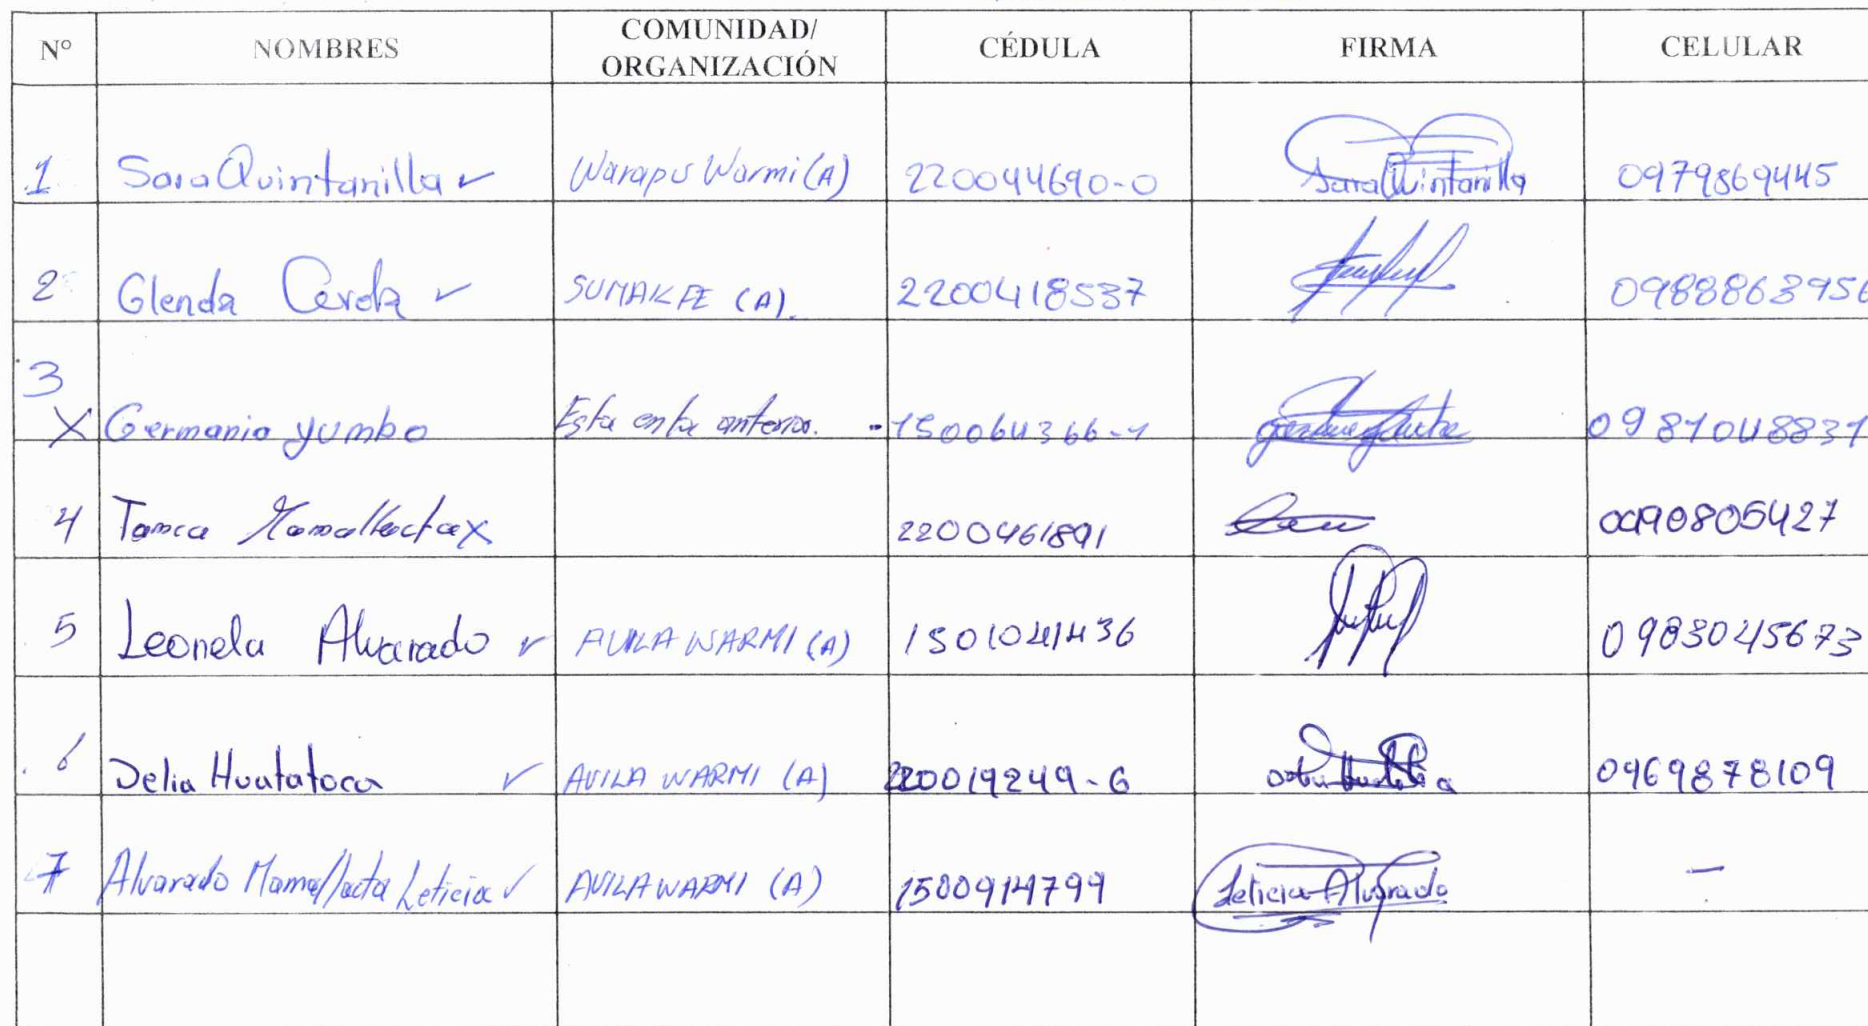 N° NOMBRES COMUNIDAD/ ORGANIZACIÓN CÉDULA FIRMA CELULAR
1 Sara Quintanilla ✓ Warapus Warmi (A) 220044690-0 Sara Quintanilla 0979869445
2 Glenda Cerda ✓ SUMAK FE (A). 2200418537 0988863956
3 X Germania yumbo Esta en la anterior. - 150064366-1 0981048831
4 Tamca Mamallacta X 2200461891 0090805427
5 Leonela Alvarado ✓ AVILA WARMI (A) 1501041436 0983045673
6 Delia Huatatoca ✓ AVILA WARMI (A) 220019249-6 0969878109
7 Alvarado Mamallacta Leticia ✓ AVILA WARMI (A) 1500914799 Leticia Alvarado —